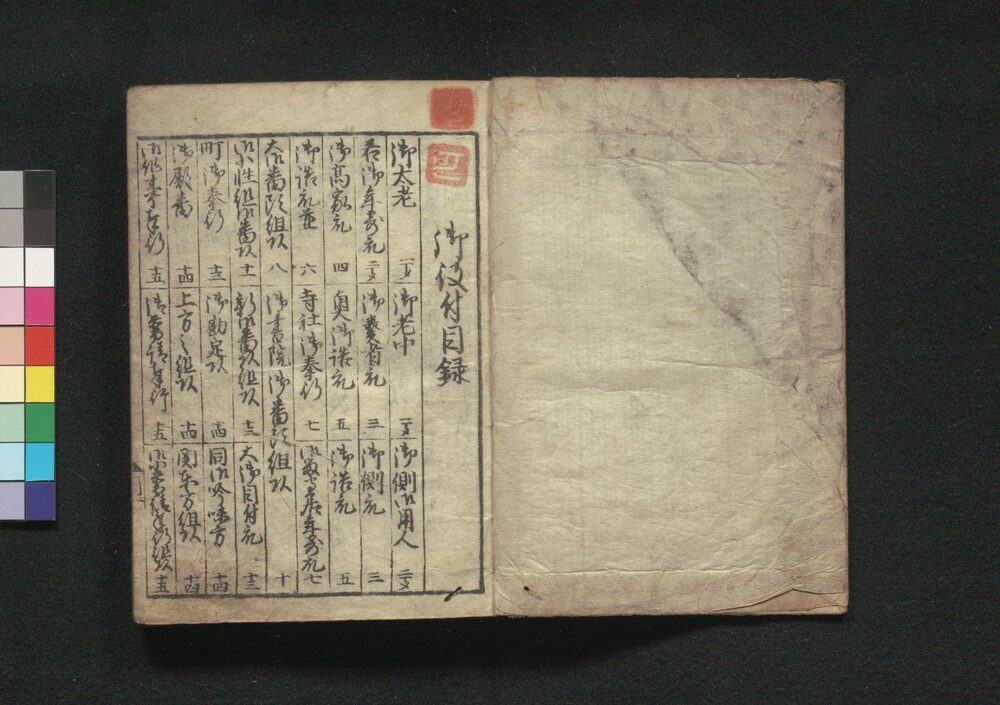 御役付目録
御大老 一丁メ 御老中 二丁メ 御側御用人 二丁メ
若御年寄衆 二丁メ 御奏者衆 三 御側衆 三
御高家衆 四 奥御詰衆 五 御詰衆 五
御詰衆並 六 寺社御奉行 七 御留守居年寄衆 七
大御番頭組頭 八 御書院御番頭組頭 十
御小性組御番頭 十一 新御番頭組頭 十三 大御目付衆 十三
町御奉行 十三 御勘定頭 十四 同御吟味方 十四
御殿番 十四 上方之組頭 十四 関東方組頭 十四
十五 御普請奉行 十五 小普請奉行組頭 十五